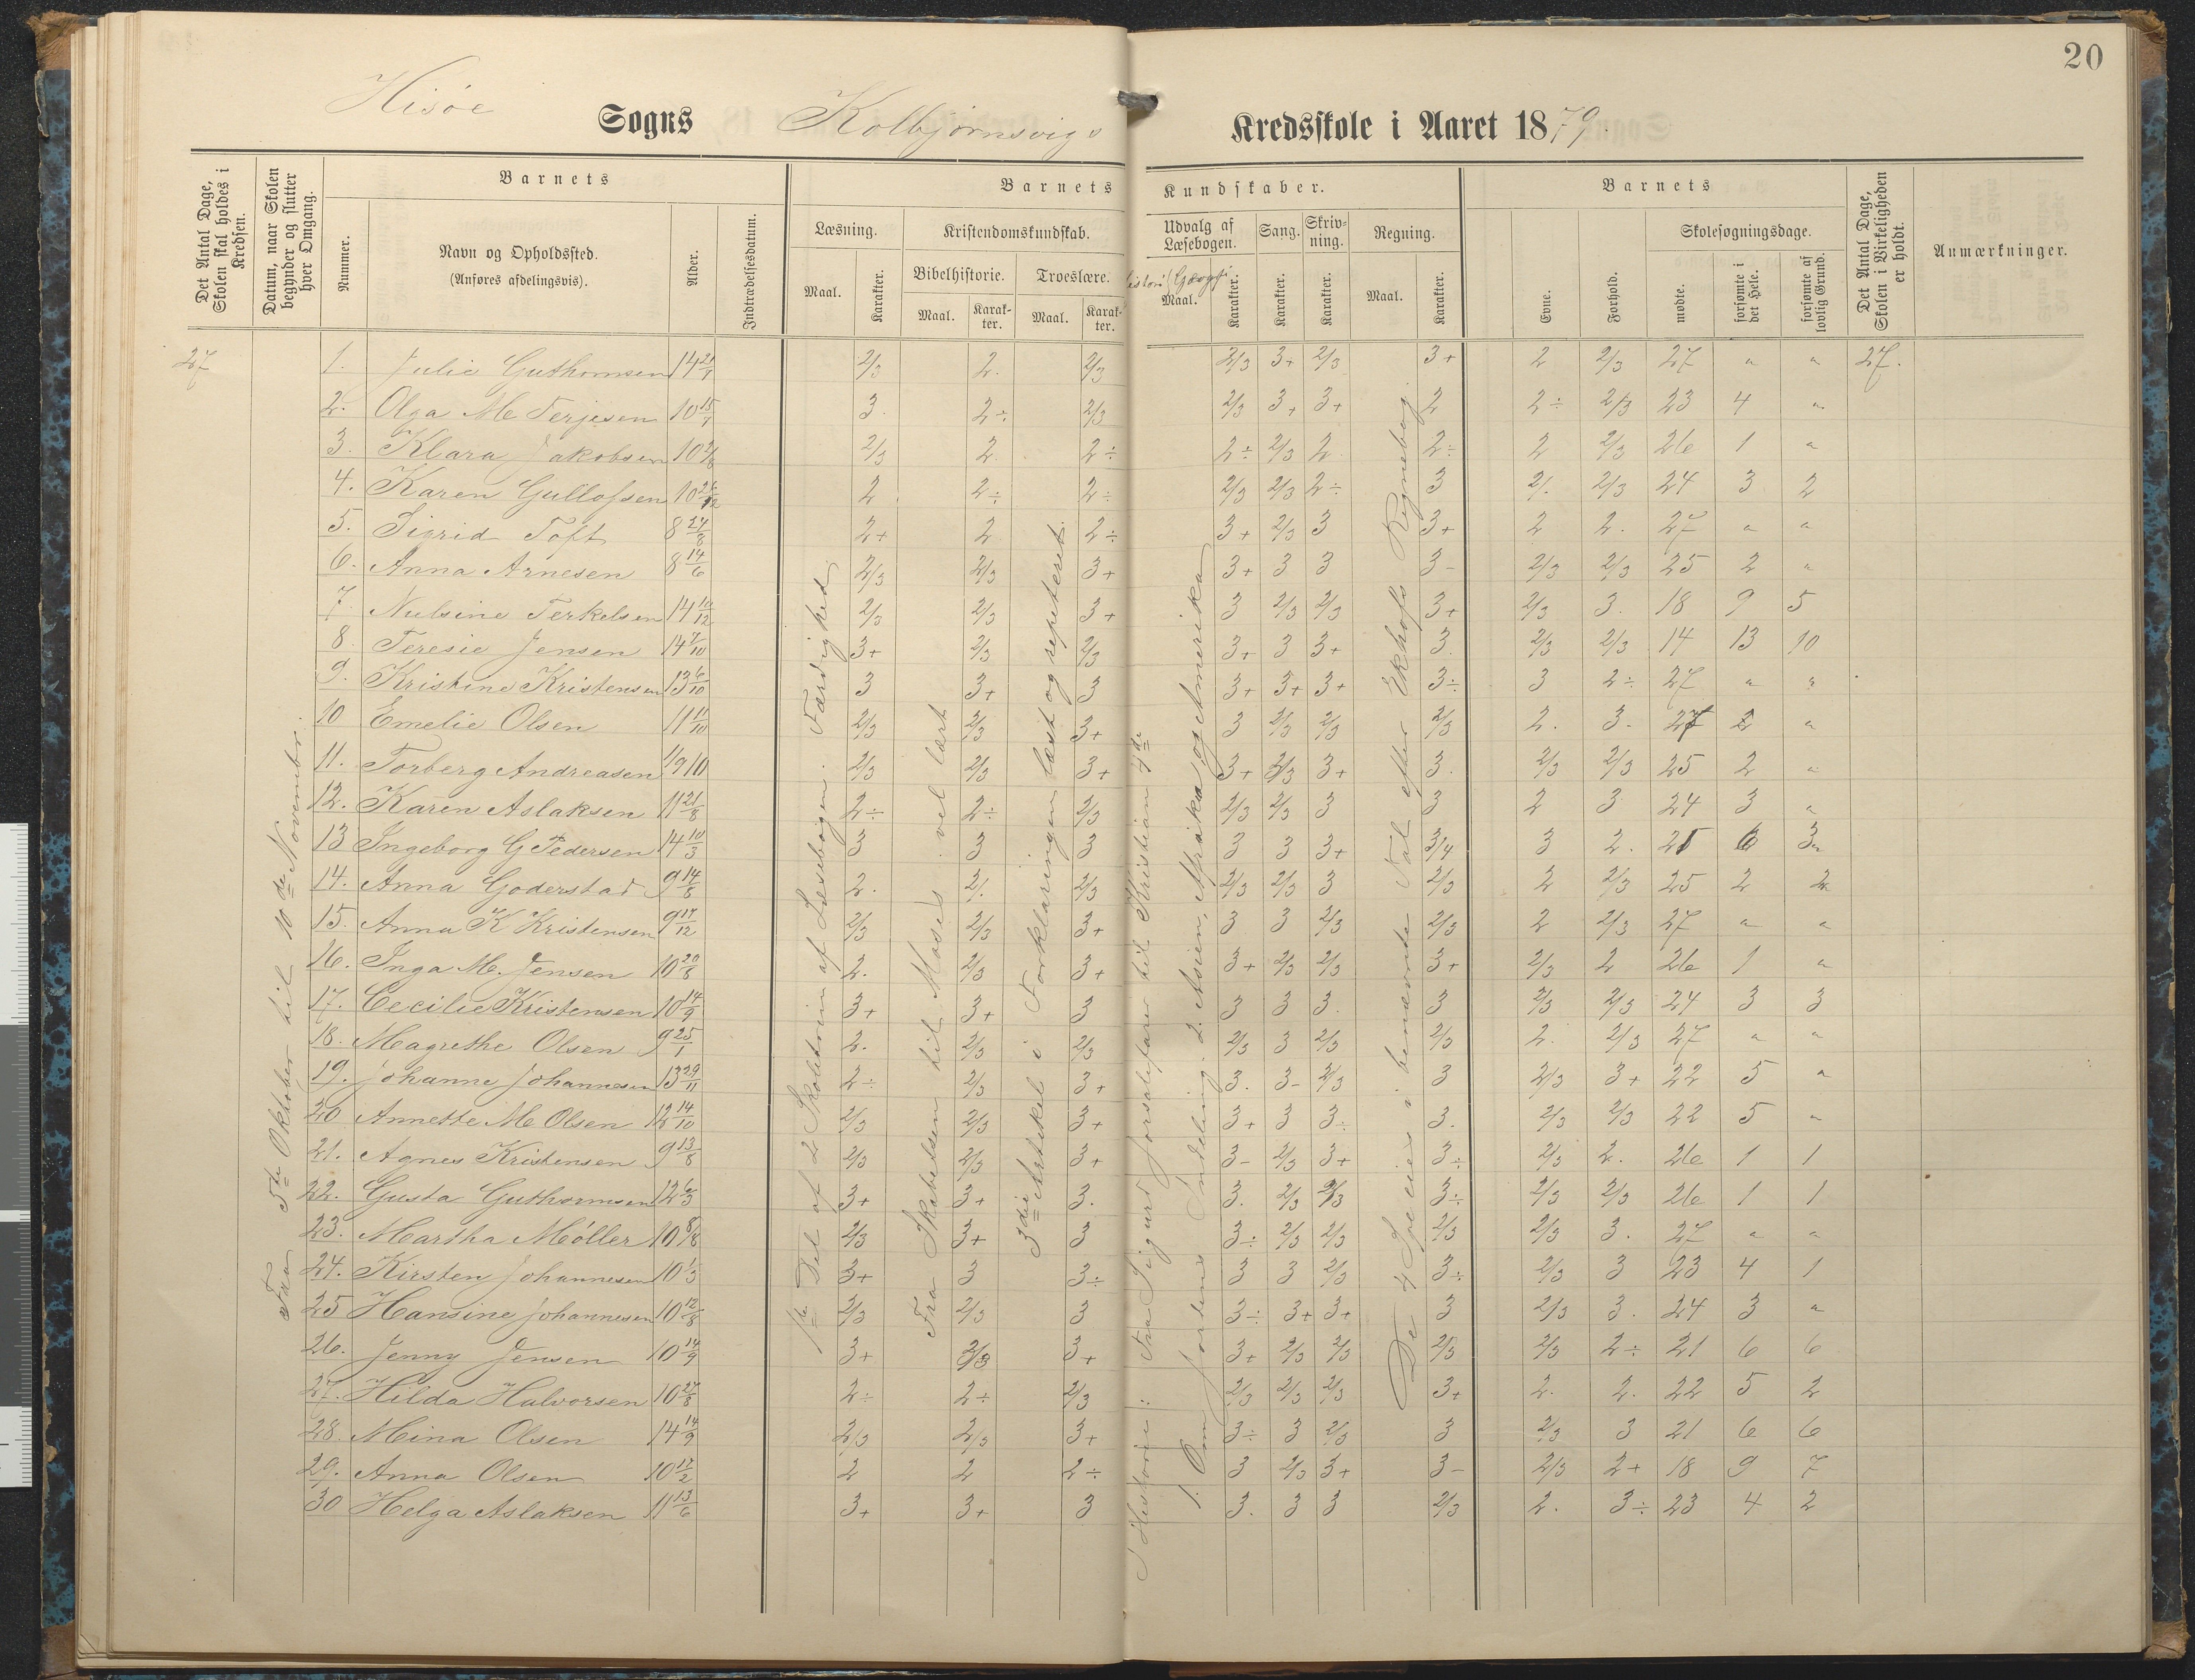 20
Hisøe Sogns Kolbjørnsvigs Kredsskole i Aaret 1879.
Det Antal Dage, Skolen skal holdes i Kredsen.
Datum, naar Skolen begynder og slutter hver Omgang.
Barnets
Nummer.
Navn og Opholdssted.
(Anføres afdelingsvis).
Alder.
Indtrædelsesdatum.
Barnets Kundskaber.
Læsning.
Maal. Karakter.
Kristendomskundskab.
Bibelhistorie. Troeslære.
Maal. Karakter. Maal. Karakter.
Udvalg af Læsebogen.
Maal. Karakter.
Sang.
Karakter.
Skrivning.
Karakter.
Regning.
Maal. Karakter.
Barnets
Evne. Forhold.
Skolesøgningsdage.
mødte. forsømte i det Hele. forsømte af lovlig Grund.
Det Antal Dage, Skolen i Virkeligheden er holdt.
Anmærkninger.
Fra 5te Oktober til 10de Novembr.
1ste Del af 2 Skoletrin af Læsebogen. Færdighed
Fra Skabelsen til Moses vel lært
3die Artikel i Forklaringen læst og repeteret.
I Historie: Fra Sigurd Jorsalefarer til Kristian 4de
1. Om Jordens Inddeling. 2. Asien, Afrika, og Amerika
De 4 Species i benævnte Tal efter Ekhofs Regnebog.
27 1. Julie Guthormsen 14 21/7 2/3 2. 2/3 2/3 3+ 2/3 3+ 2 2/3 27 " " 27.
2. Olga M Terjesen 10 15/7 3. 2÷ 2/3 2/3 3+ 3+ 2 2÷ 2/3 23 4 "
3. Klara Jakobsen 10 2/8 2/3 2 2÷ 2÷ 2/3 2 2÷ 2 2/3 26 1 "
4. Karen Gullofsen 10 26/12 2 2÷ 2÷ 2/3 2/3 2÷ 3 2/. 2/3 24 3 2
5. Sigrid Toft 8 24/8 2+ 2 2÷ 3+ 2/3 3 3+ 2 2. 27 " "
6. Anna Arnesen 8 14/6 2/3 2/3 3+ 3+ 3 3 3- 2/3 2/3 25 2 "
7. Nulsine Terkelsen 14 10/12 2/3 2/3 3+ 3 2/3 2/3 3+ 2/3 3. 18 9 5
8. Teresie Jensen 14 7/10 3+ 2/3 2/3 3+ 3 3+ 3. 2/3 2/3 14 13 10
9. Kristine Kristensen 13 6/10 3 3+ 3 3+ 3+ 3+ 3÷ 3 2÷ 27 " "
10 Emelie Olsen 11 11/10 2/3 2/3 3+ 3 2/3 2/3 2/3 2. 3. 27 "
11. Torberg Andreasen 1/9 10 2/3 2/3 3+ 3+ 2/3 3+ 3. 2/3 2/3 25 2 "
12. Karen Aslaksen 11 21/8 2÷ 2÷ 2/3 2/3 2/3 3 3 2 3 24 3 "
13 Ingeborg G Pedersen 14 10/3 3 3 3 3 3 3+ 3/4 3 2. 21 6 3
14. Anna Goderstad 9 14/8 2. 2/. 2/3 2/3 2/3 3 2/3 2 2/3 25 2 2
15. Anna K Kristensen 9 17/12 2/3 2/3 3+ 3 3 2/3 2/3 2 2/3 27 " "
16. Inga M. Jensen 10 20/8 2. 2/3 3+ 3+ 2/3 2/3 3+ 2/3 2 26 1 "
17. Cecilie Kristensen 10 14/9 3+ 3+ 3 3 3 3. 3 2/3 2/3 24 3 3
18. Magrethe Olsen 9 25/1 2. 2/3 2/3 2/3 3 2/3 2/3 2. 2/3 27 " "
19. Johanne Johannesen 13 29/11 2÷ 2/3 3+ 3. 3- 2/3 3 2/3 3+ 22 5 "
20 Annette M Olsen 12 14/10 2/3 2/3 3+ 3+ 3 3÷ 3. 2/3 2/3 22 5 "
21. Agnes Kristensen 9 13/8 2/3 2/3 3+ 3- 2/3 3+ 3÷ 2/3 2. 26 1 1
22. Gusta Guthormsen 12 6/3 3+ 3+ 3. 3. 2/3 2/3 3÷ 2/3 2/3 26 1 1
23. Martha Møller 10 8/8 2/3 3+ 3 3÷ 2/3 2/3 2/3 2/3 3. 27 " "
24. Kirsten Johannesen 10 1/3 3+ 3 3÷ 3 3 2/3 3÷ 2/3 3 23 4 1
25 Hansine Johannesen 10 12/8 2/3 2/3 3 3÷ 3+ 3+ 3 2/3 3. 24 3 "
26. Jenny Jensen 10 14/9 3+ 2/3 3+ 3+ 2/3 2/3 2/3 2/3 2÷ 21 6 6
27. Hilda Halvorsen 10 27/8 2÷ 2÷ 2/3 2/3 2/3 2/3 3+ 2. 2. 22 5 2
28. Mina Olsen 14 14/9 2/3 2/3 3+ 3÷ 3 2/3 3 2/3 3 21 6 6
29. Anna Olsen 10 17/2 2 2 2÷ 3 2/3 3+ 3- 2/3 2+ 18 9 7
30 Helga Aslaksen 11 13/6 3+ 3+ 3 3. 3 3 2/3 2. 3÷ 23 4 2